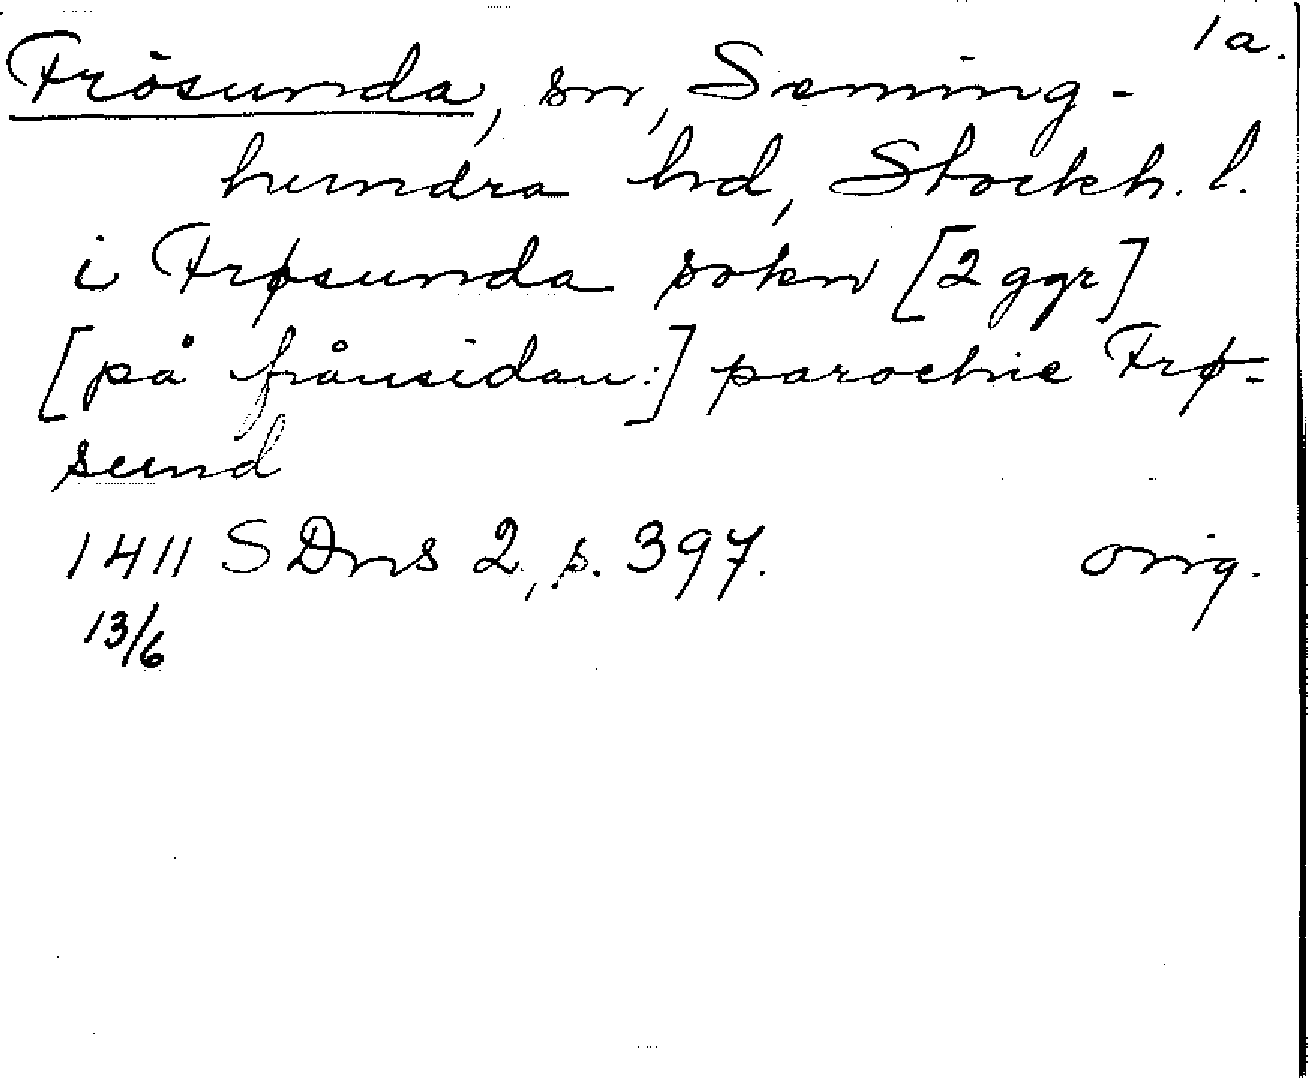 1a.
Frösunda, sn, Seming-
hundra hd, Stockh. l.
i Frøsunda sokn [2 ggr]
[på frånsidan:] parochie Frø-
sund
1411 SDns 2, s. 397. orig.
13/6